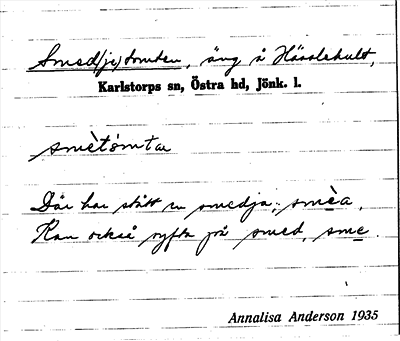 Smed(je)tomten, äng å Hässlehult,
Karlstorps sn, Östra hd, Jönk. l.
smètómtæ
Där har stått en smedja, smèa.
Kan också syfta på smed, sme.
Annalisa Anderson 1935